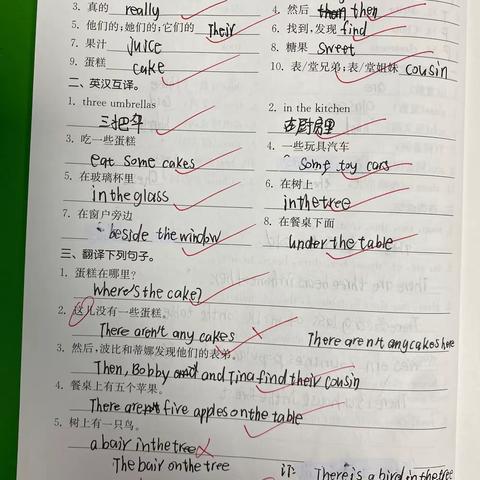 3. 真的 really 4. 然后 then
5. 他们的;她们的;它们的 Their 6. 找到,发现 find
7. 果汁 juice 8. 糖果 sweet
9. 蛋糕 cake 10. 表/堂兄弟;表/堂姐妹 cousin
二、英汉互译。
1. three umbrellas 2. in the kitchen
三把伞 在厨房里
3. 吃一些蛋糕 4. 一些玩具汽车
eat some cakes Some toy cars
5. 在玻璃杯里 6. 在树上
in the glass in the tree
7. 在窗户旁边 8. 在餐桌下面
beside the window under the table
三、翻译下列句子。
1. 蛋糕在哪里?
Where's the cake?
2. 这儿没有一些蛋糕。
There aren't any cakes There aren't any cakes here
3. 然后,波比和蒂娜发现他们的表弟。
Then, Bobby and Tina find their cousin
4. 餐桌上有五个苹果。
There are five apples on the table
5. 树上有一只鸟。
a bair in the tree
The bair on the tree
订: There is a bird in the tree